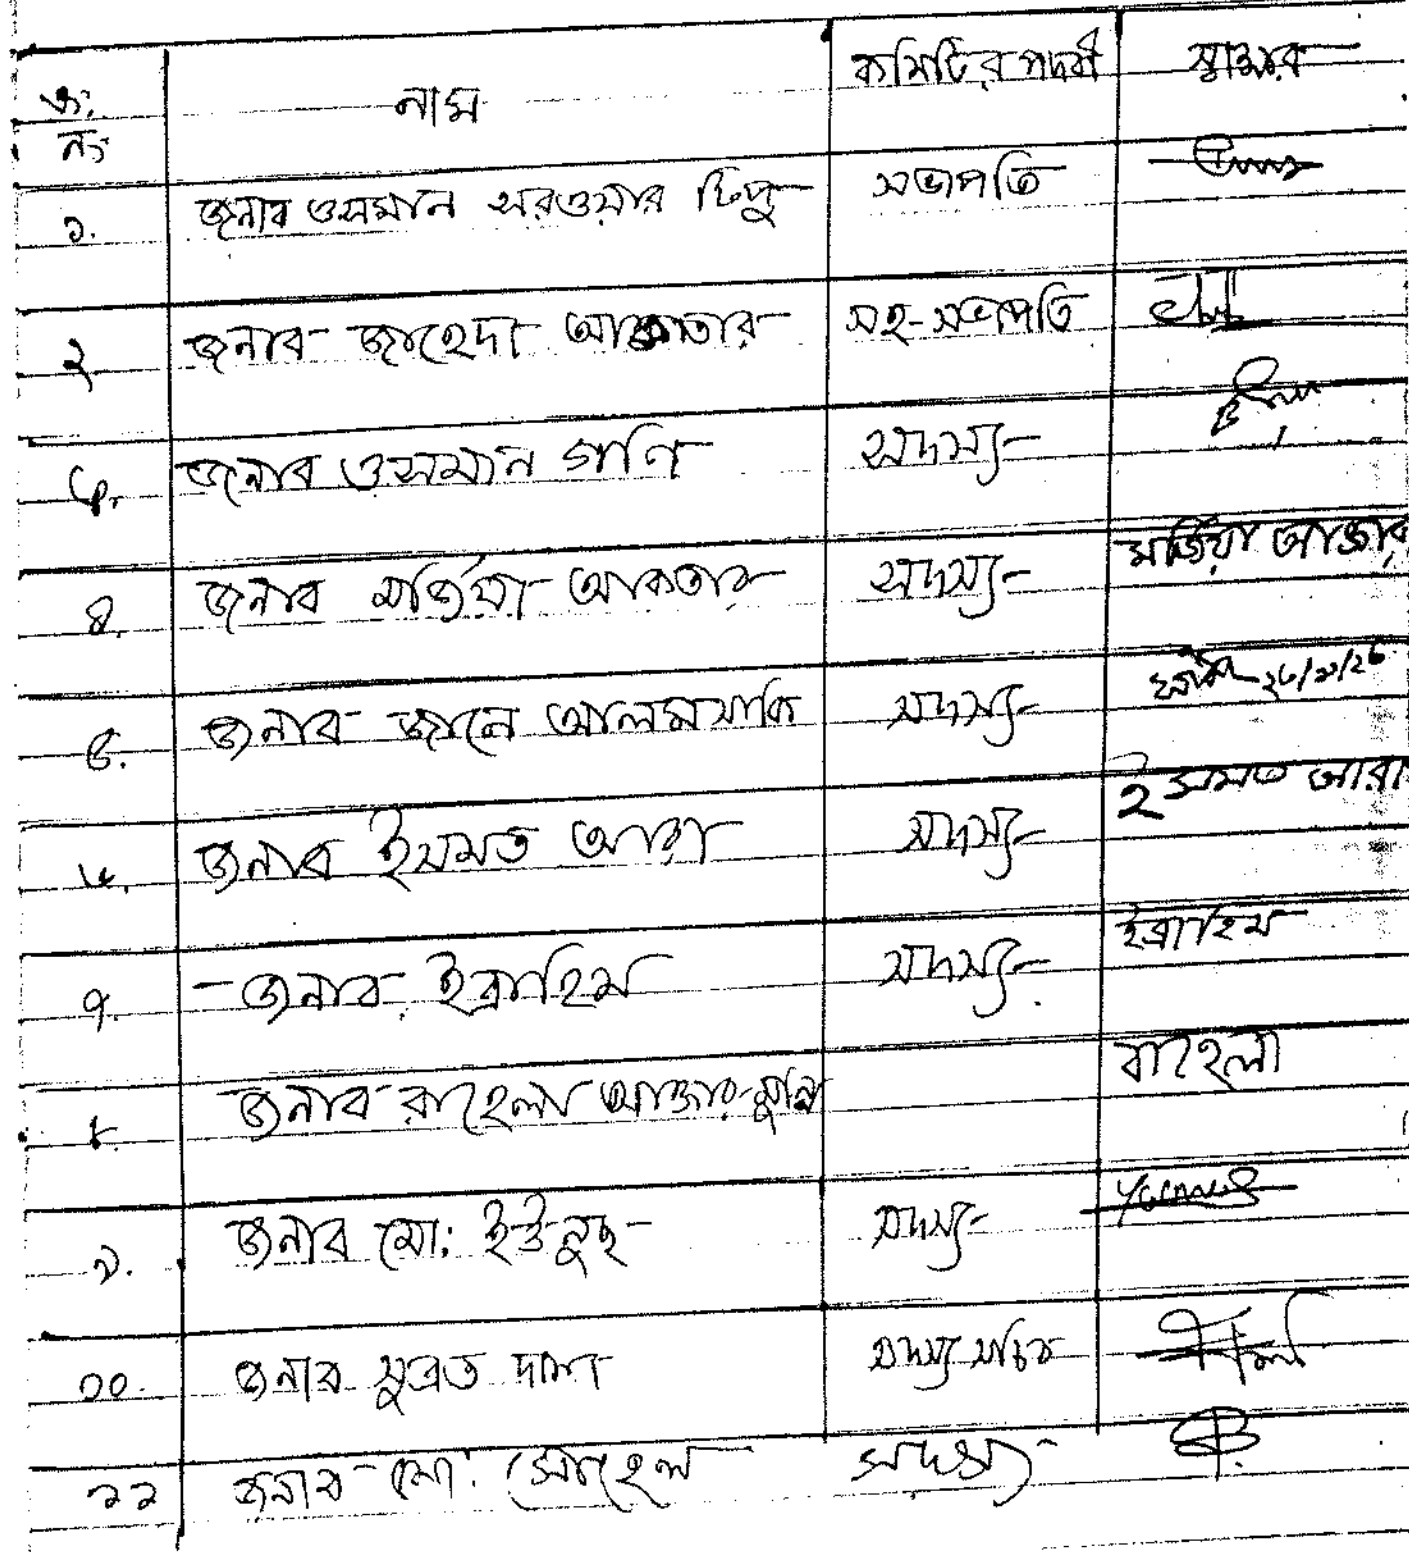 ক্র: নাম কমিটির পদবী স্বাক্ষর
নং
১. জনাব ওসমান সরওয়ার টিপু সভাপতি
২ জনাব জাহেদা আকতার সহ-সভাপতি
৩. জনাব ওসমান গণি সদস্য
৪. জনাব মর্জিয়া আকতার সদস্য মর্জিয়া আক্তার
৫. জনাব জানে আলম সাকি সদস্য
৬. জনাব ইসমত আরা সদস্য ইসমত আরা
৭. জনাব ইব্রাহিম সদস্য ইব্রাহিম
৮. জনাব রাহেলা আক্তার মুন্নি রাহেলা
৯. জনাব মো: ইউনুছ সদস্য
১০. জনাব সুব্রত দাশ সদস্য সচিব
১১ জনাব মো: সোহেল সদস্য